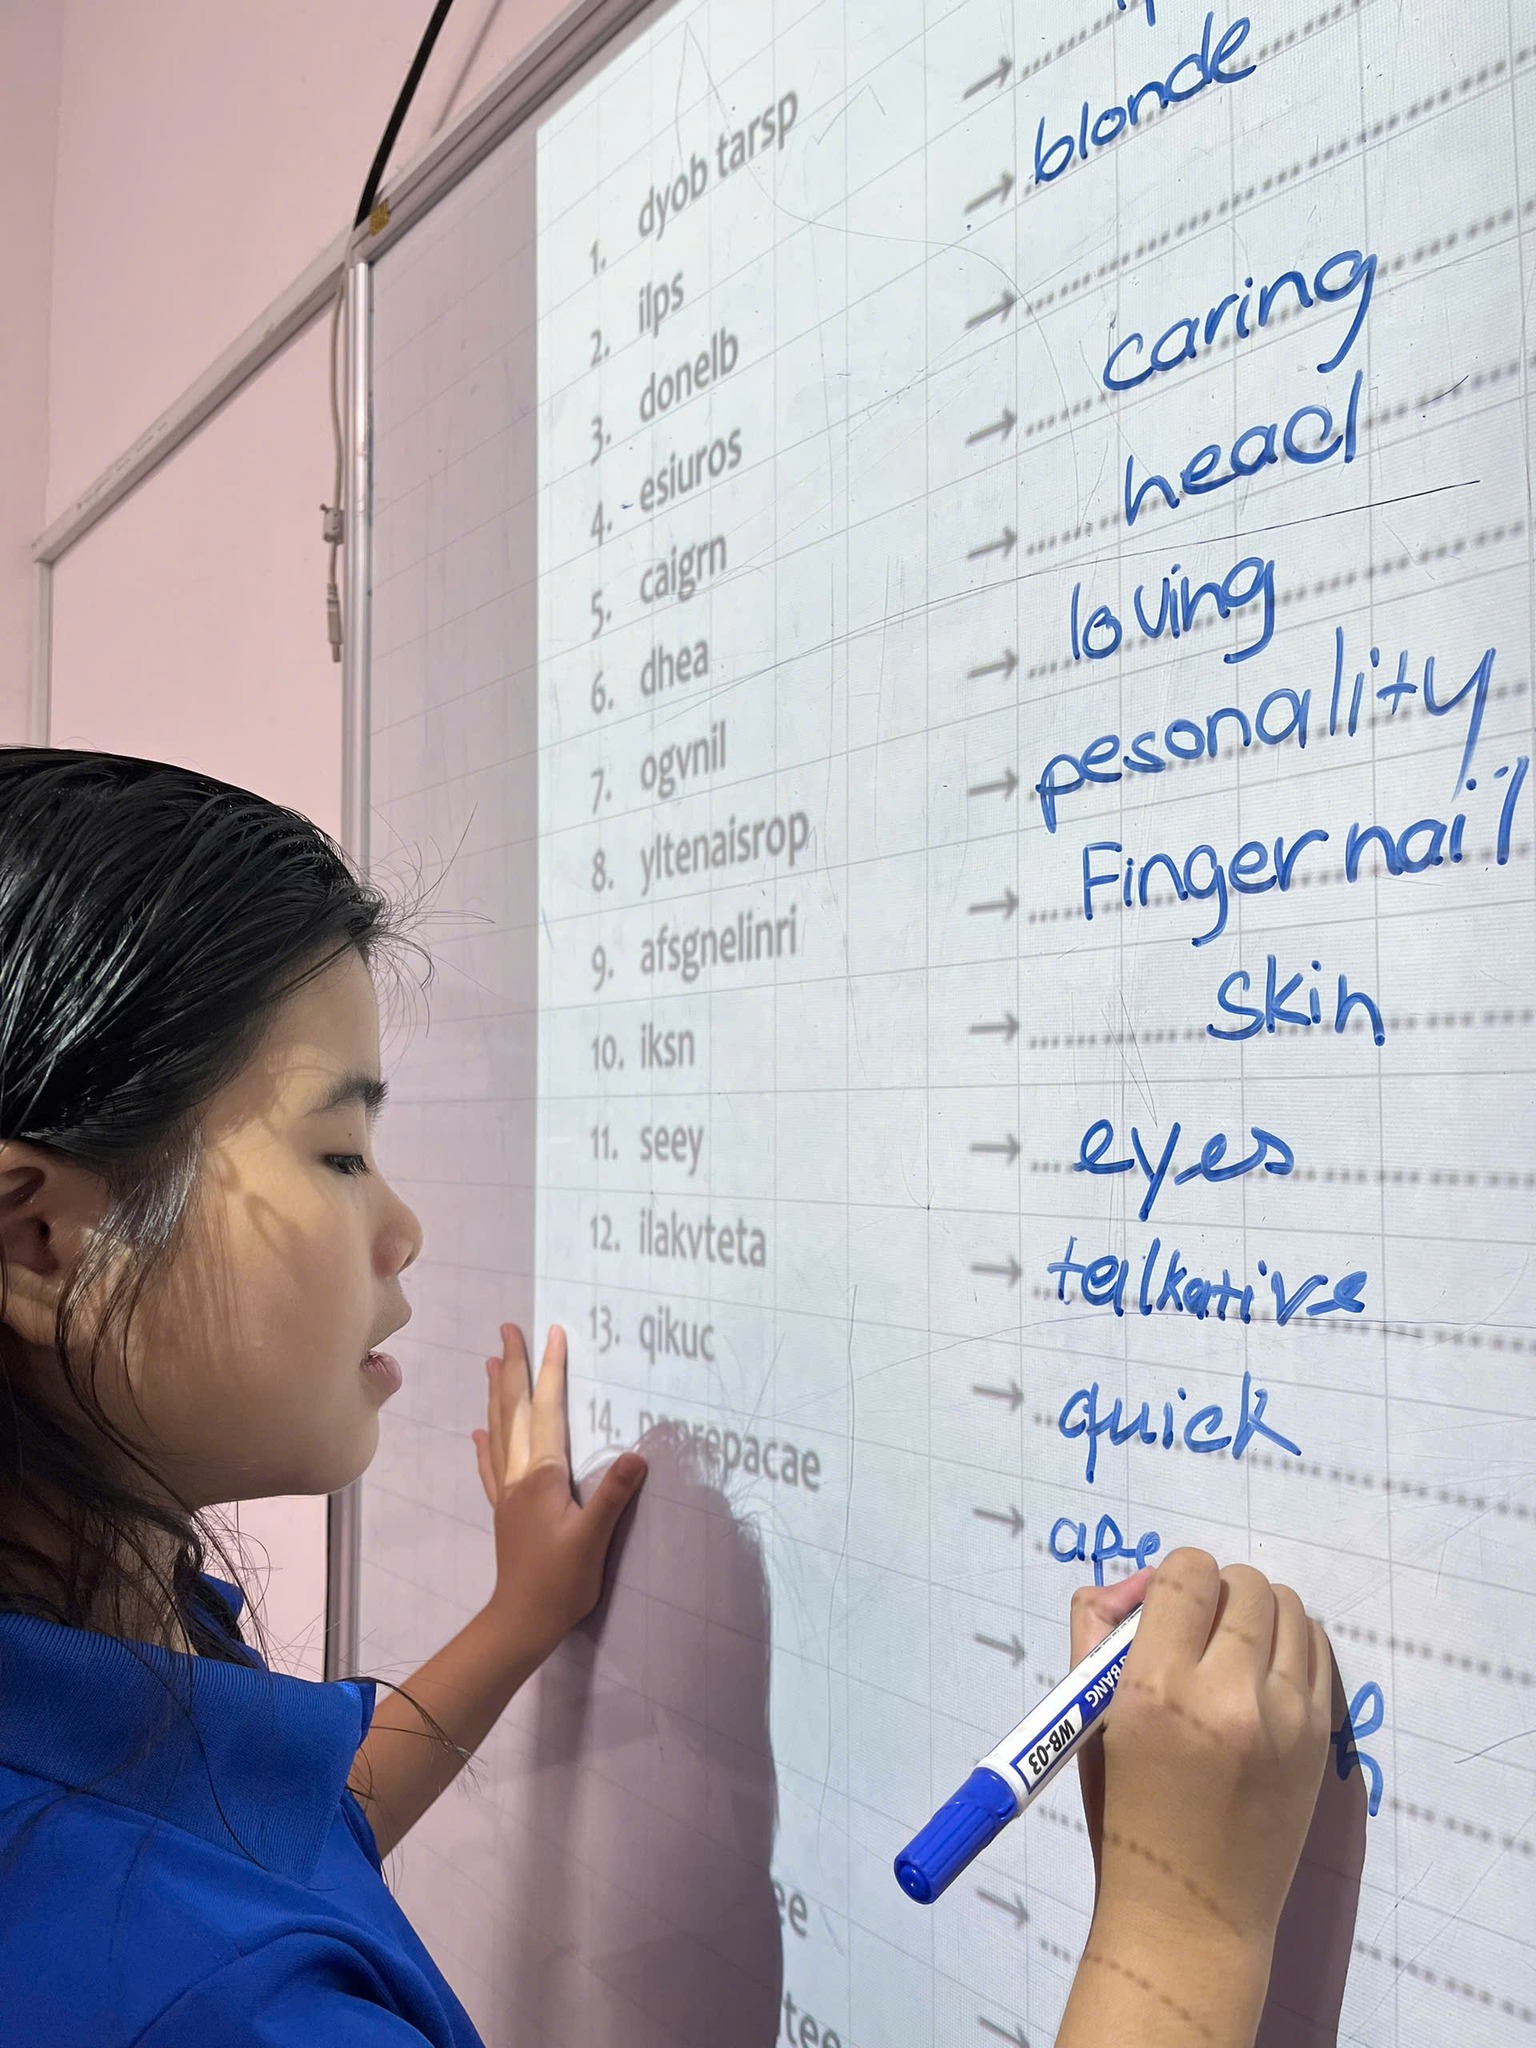 1. dyob tarsp →
2. ilps → blonde
3. donelb →
4. esiuros → caring
5. caigrn → head
6. dhea → loving
7. ogvnil → pesonality
8. yltenaisrop → Fingernail
9. afsgnelinri → skin
10. iksn → eyes
11. seey → talkative
12. ilakvteta → quick
13. qikuc → ape
14.
WB-03